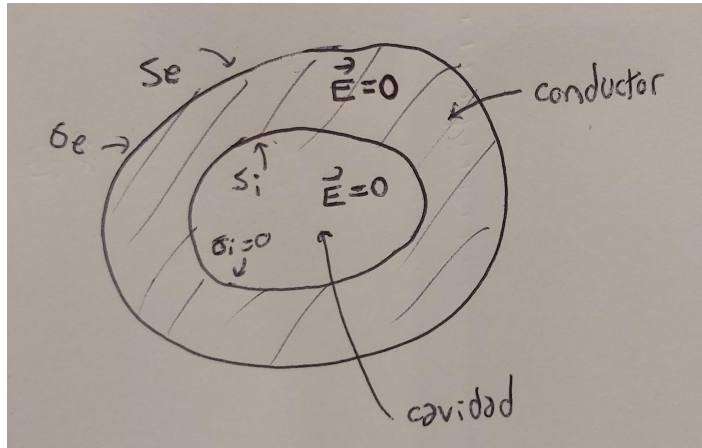 Se
E⃗=0
conductor
σe
Si
E⃗=0
σi=0
cavidad